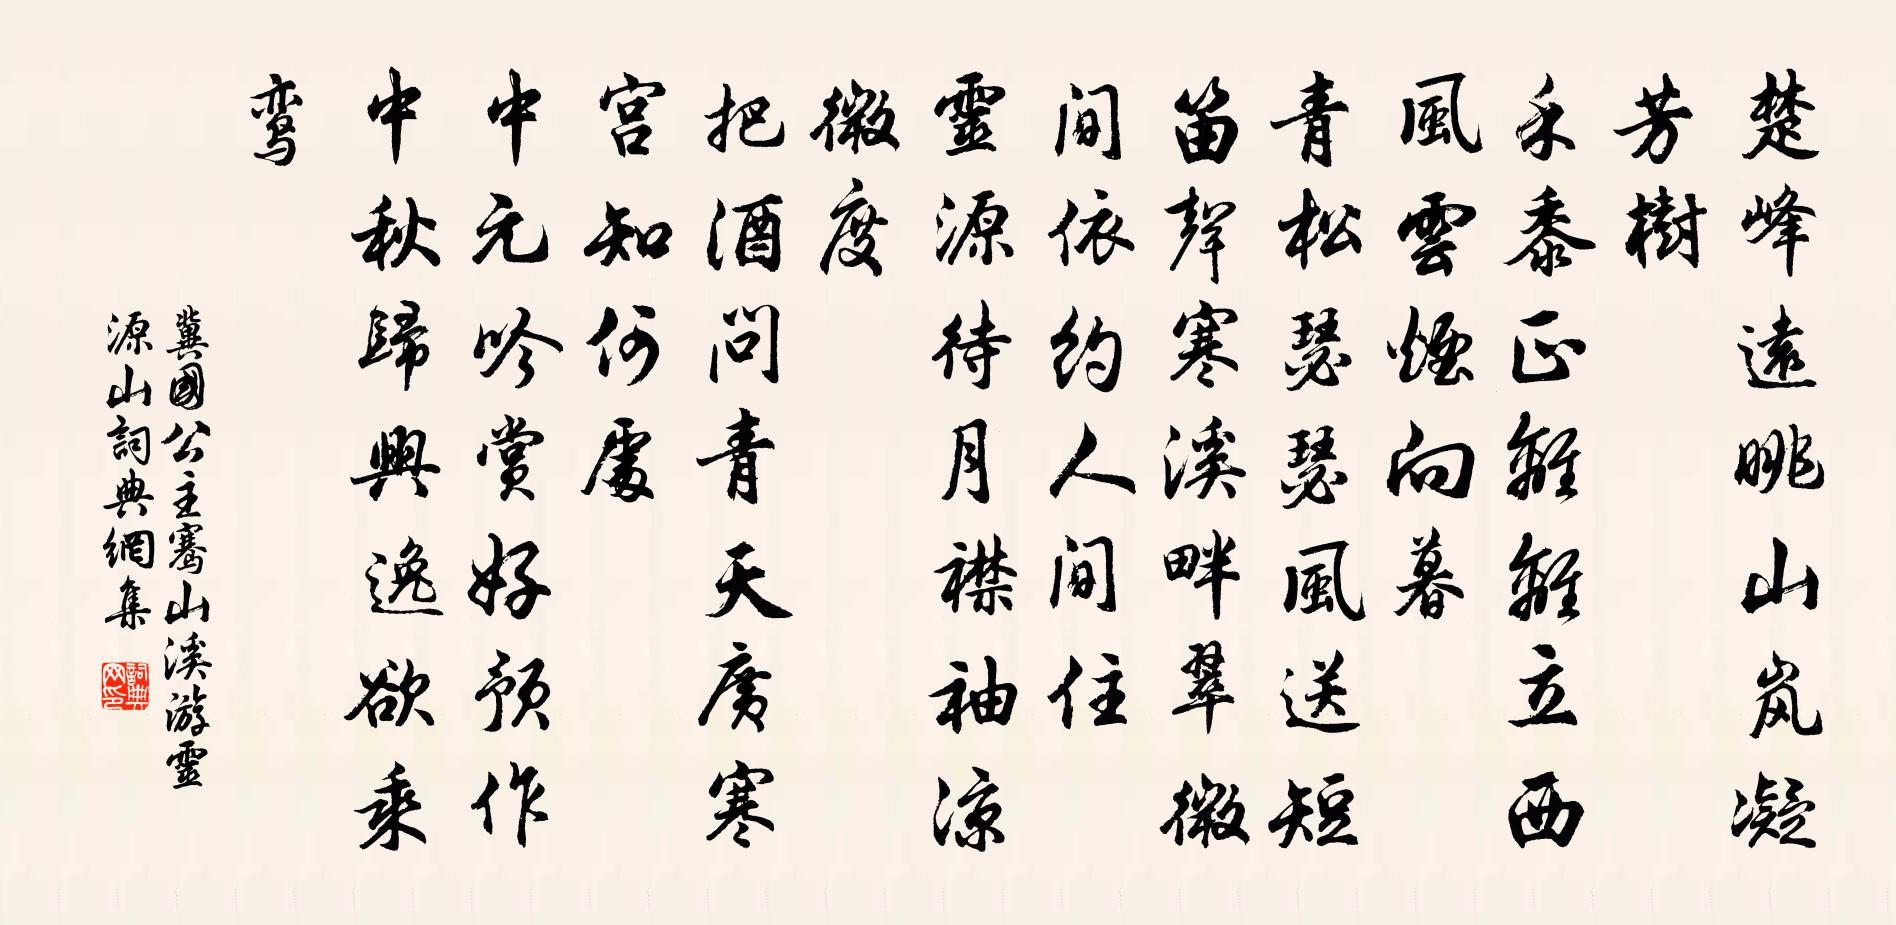 楚峰遠眺山岚凝
芳樹
禾黍正離離立西
風雲煙向暮
青松瑟瑟風送短
笛聲寒溪畔翠微
間依約人間住
靈源待月襟袖涼
微度
把酒問青天廣寒
宫知何處
中元吟賞好预作
中秋歸興逸欲乘
鸾
冀國公主骞山溪游靈
源山詞典網集
詞典
网印